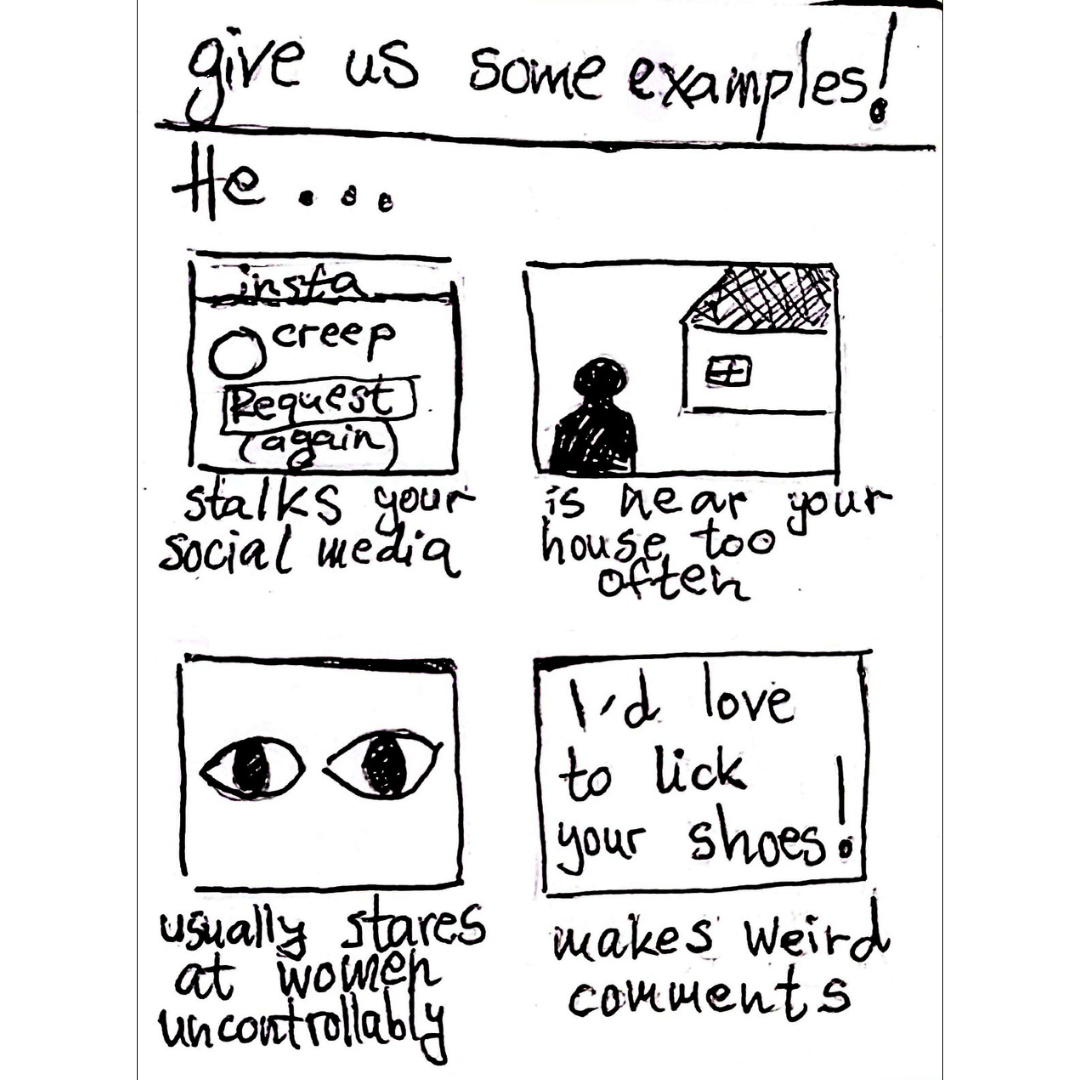 give us some examples!
He...
insta
creep
Request
(again)
stalks your
social media
is near your
house too
often
usually stares
at women
uncontrollably
I'd love
to lick
your shoes!
makes weird
comments